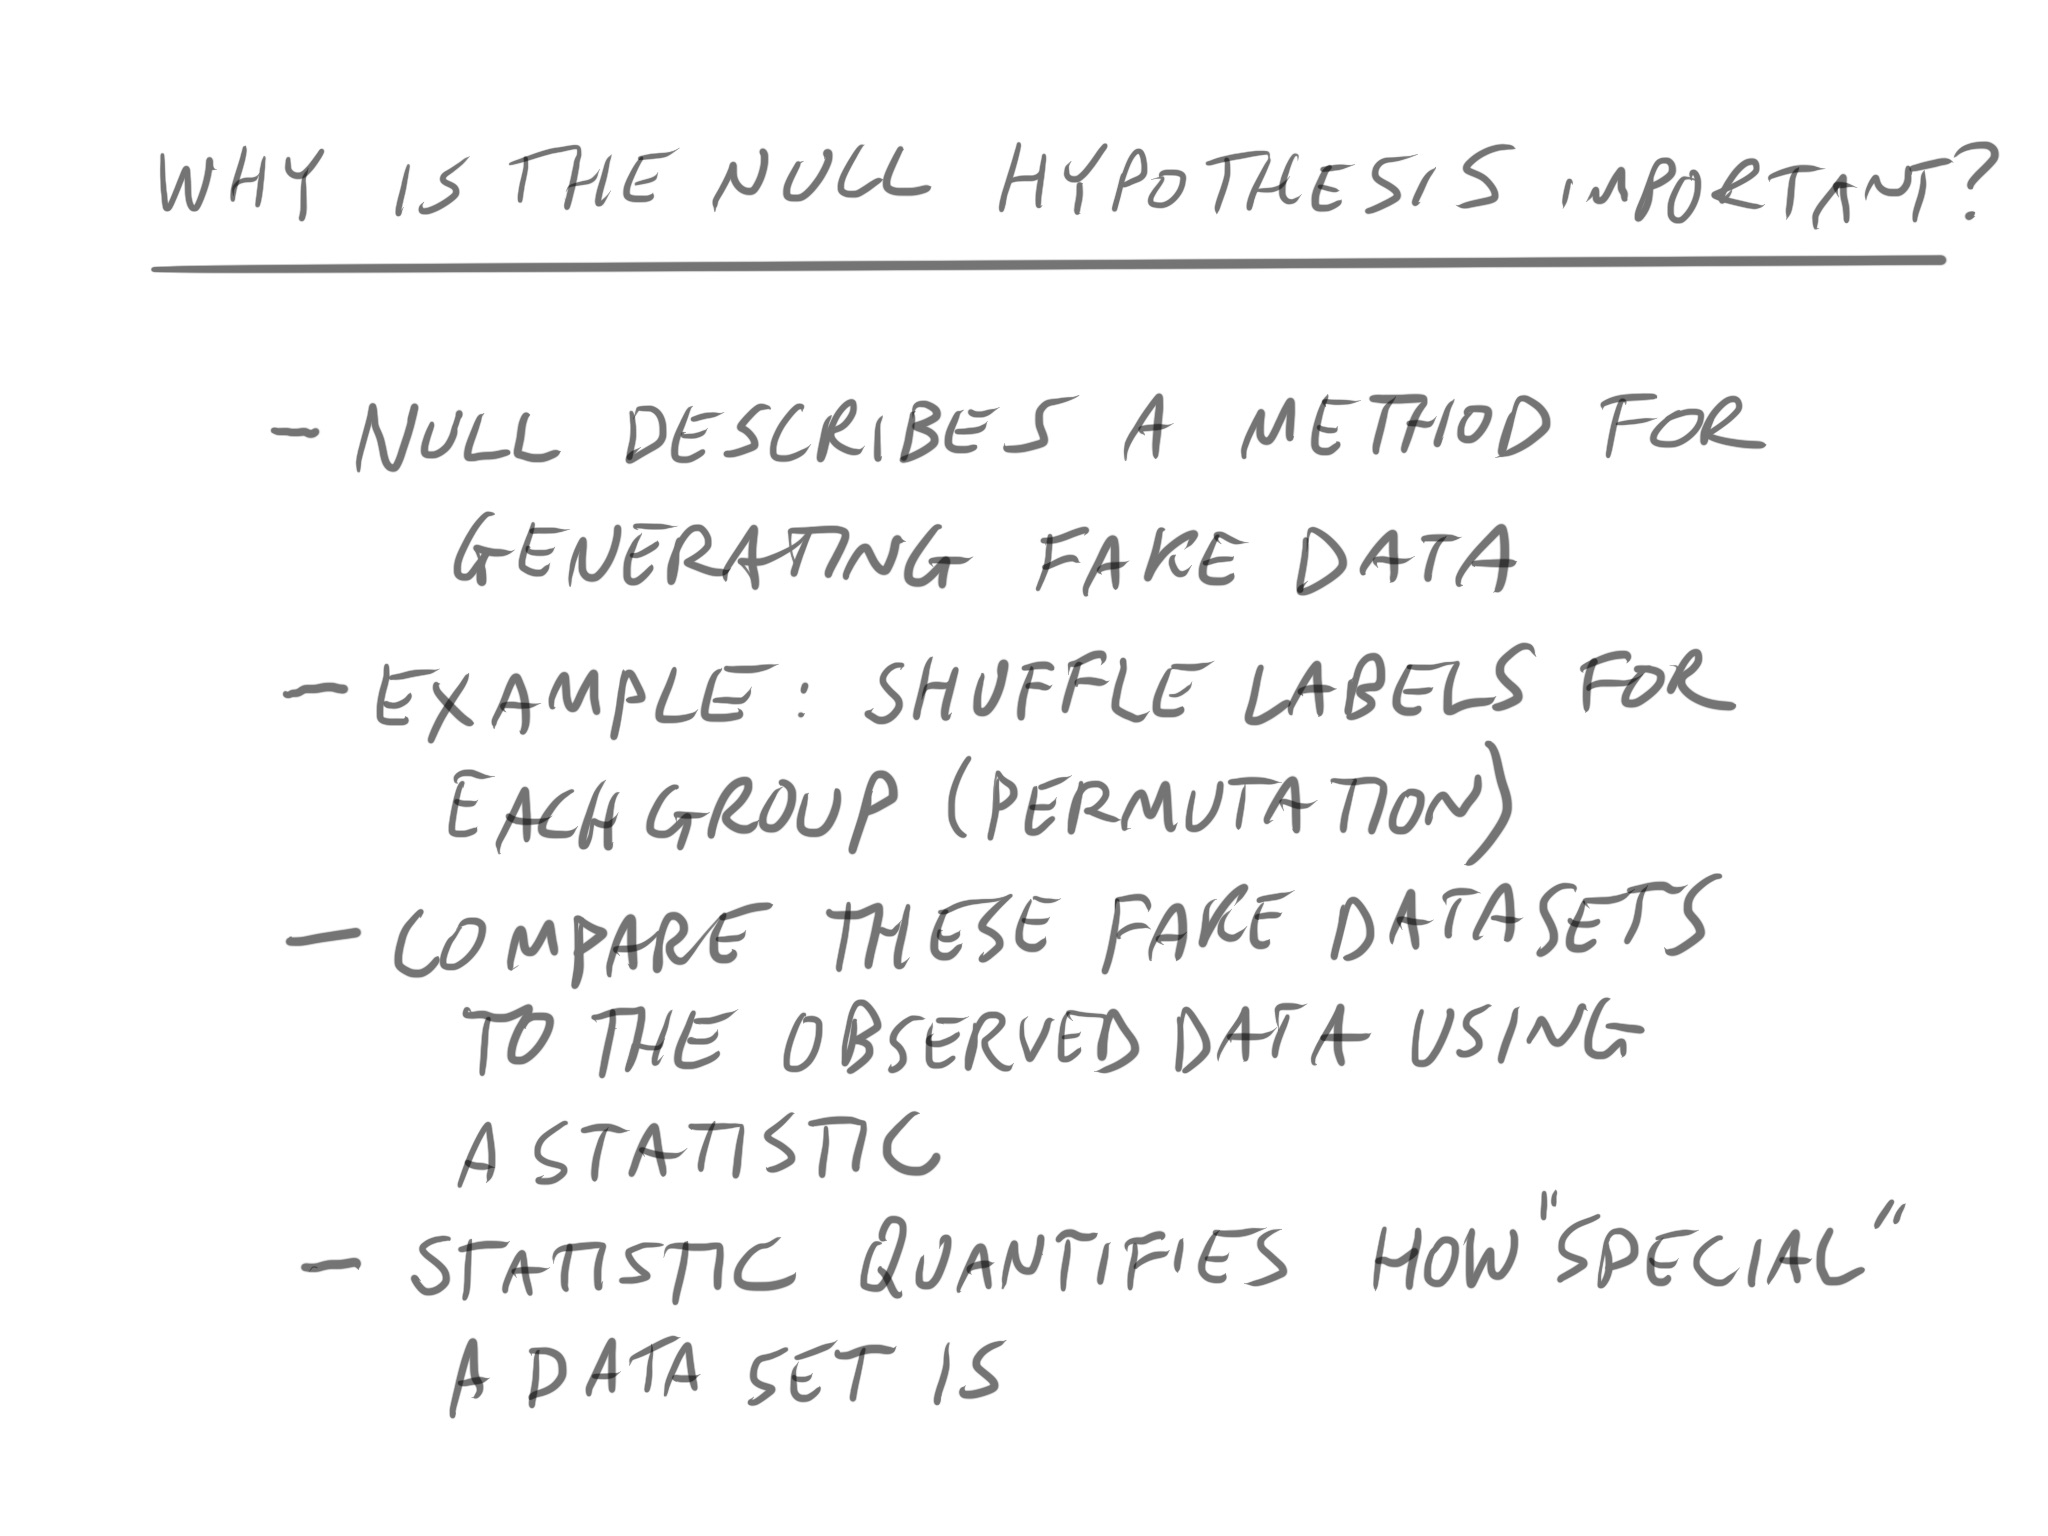 WHY IS THE NULL HYPOTHESIS IMPORTANT?
- NULL DESCRIBES A METHOD FOR
GENERATING FAKE DATA
- EXAMPLE: SHUFFLE LABELS FOR
EACH GROUP (PERMUTATION)
- COMPARE THESE FAKE DATASETS
TO THE OBSERVED DATA USING
A STATISTIC
- STATISTIC QUANTIFIES HOW "SPECIAL"
A DATA SET IS